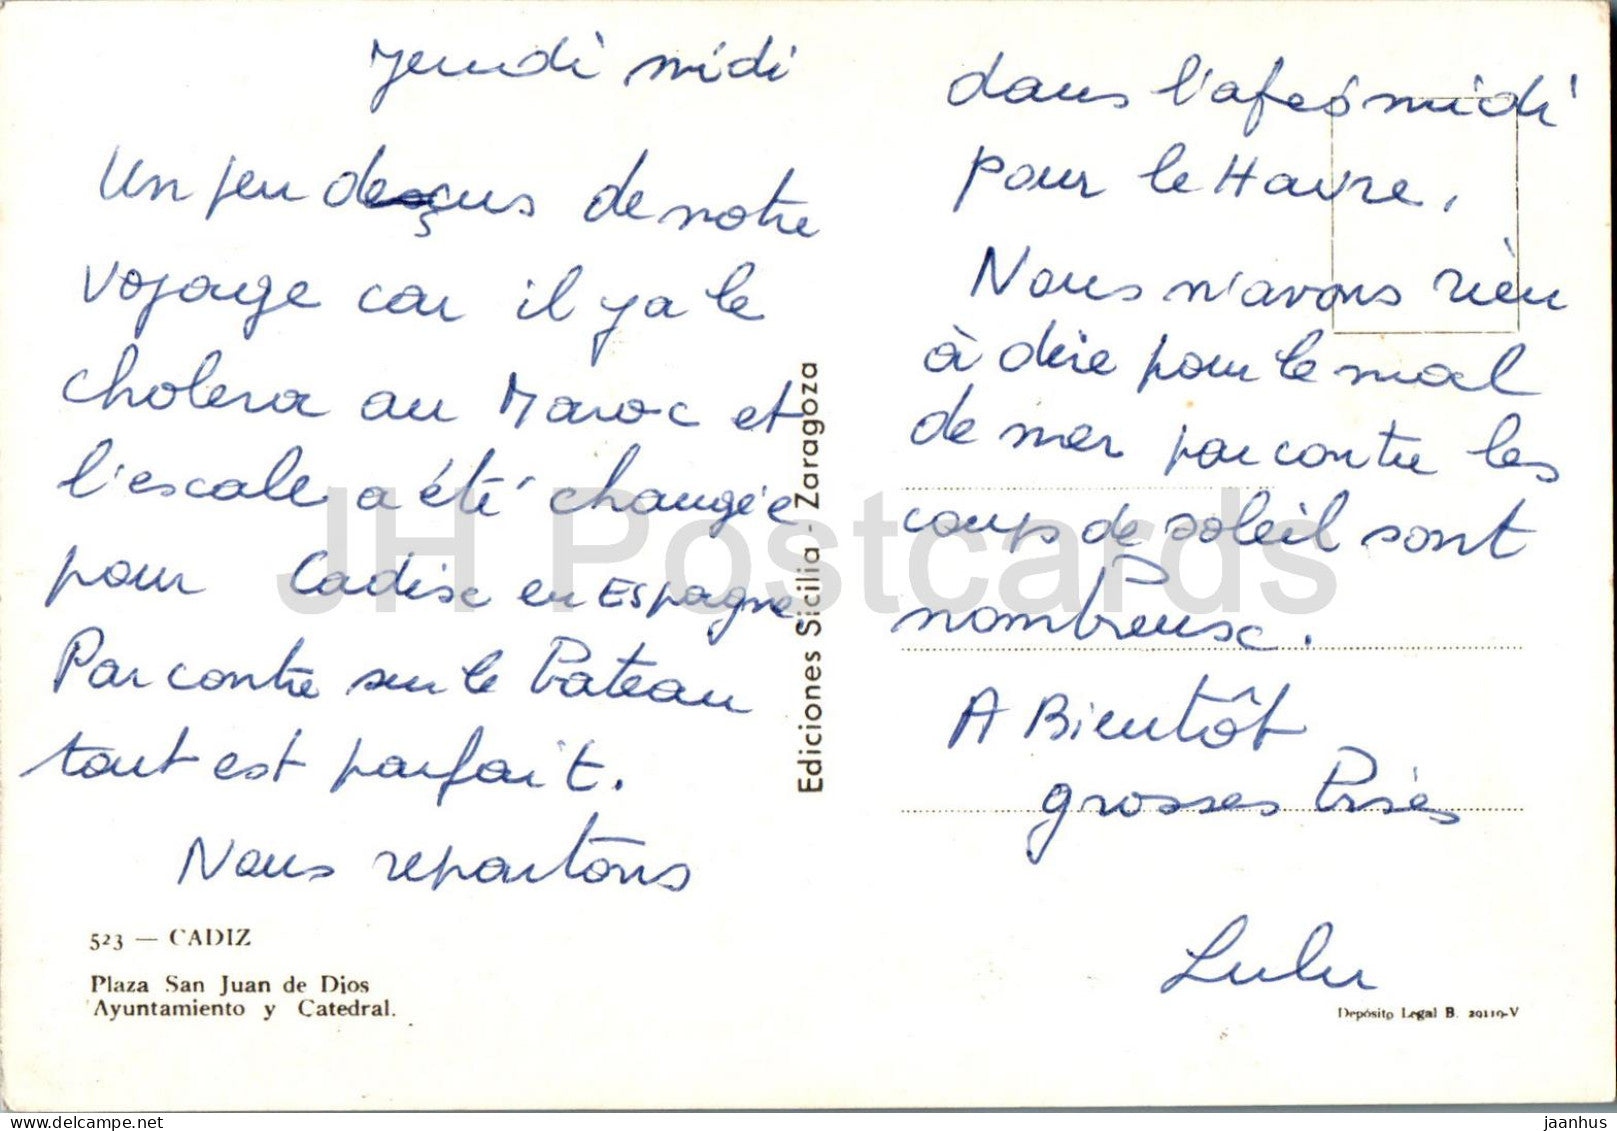 Jeudi midi
Un peu deçus de notre
voyage car il y a le
cholera au Maroc et
l'escale a été changée
pour Cadise en Espagne.
Par contre sur le bateau
tout est parfait.
Nous repartons
523 — CADIZ
Plaza San Juan de Dios
Ayuntamiento y Catedral.
Ediciones Sicilia - Zaragoza
dans l'après midi
pour le Havre.
Nous n'avons rien
à dire pour le mal
de mer par contre les
coups de soleil sont
nombreuse.
A Bientôt
grosses Bises
Lulu
Depósito Legal B. 29119-V
JH Postcards
jaanhus